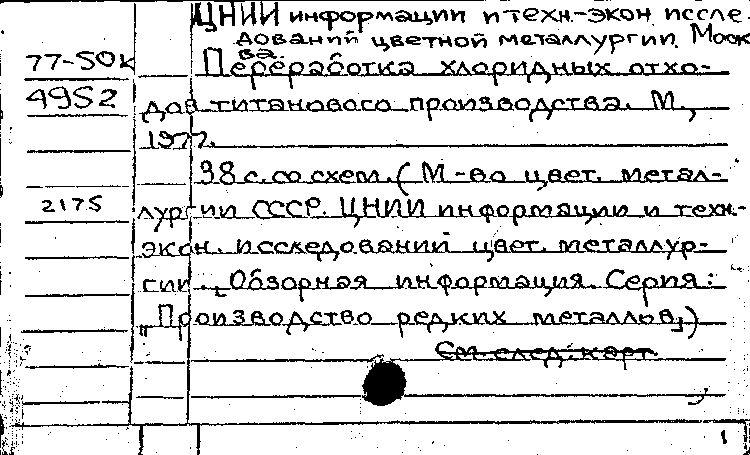 ЦНИИ информации и техн.-экон. иссле
дований цветной металлургии. Моск
ва.
77-50к Переработка хлоридных отхо-
4952 дов титанового производства. М.,
1977.
38 с. со схем. (М-во цвет. метал-
2175 лургии СССР. ЦНИИ информации и техн.-
экон. исследований цвет. металлур-
гии. „Обзорная информация. Серия:
„Производство редких металлов„)
См. след. карт.
1